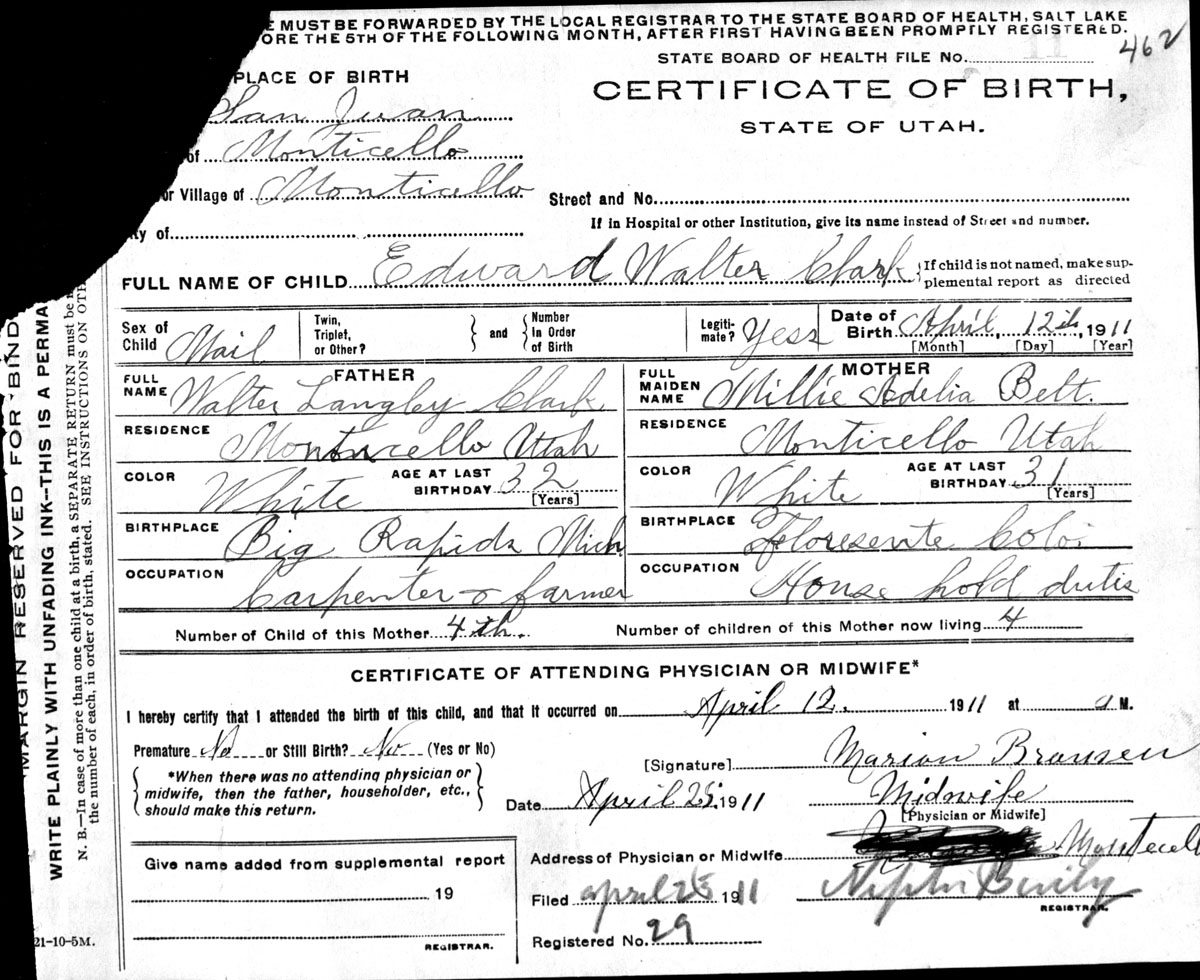 E MUST BE FORWARDED BY THE LOCAL REGISTRAR TO THE STATE BOARD OF HEALTH, SALT LAKE
ORE THE 5TH OF THE FOLLOWING MONTH, AFTER FIRST HAVING BEEN PROMPTLY REGISTERED.
STATE BOARD OF HEALTH FILE No. 11 462
PLACE OF BIRTH
CERTIFICATE OF BIRTH,
STATE OF UTAH.
San Juan
of Monticello
or Village of Monticello
Street and No.
If in Hospital or other Institution, give its name instead of Street and number.
ty of
FULL NAME OF CHILD Edward Walter Clark
If child is not named, make sup-
plemental report as directed
Sex of Child Mail
Twin, Triplet, or Other? and Number In Order of Birth
Legiti-mate? Yess
Date of Birth April, 12th, 1911
[Month] [Day] [Year]
FATHER
FULL NAME Walter Langley Clark
RESIDENCE Monticello Utah
COLOR White AGE AT LAST BIRTHDAY 32 [Years]
BIRTHPLACE Big Rapids Mich
OCCUPATION Carpenter & farmer
MOTHER
FULL MAIDEN NAME Millie Belt.
RESIDENCE Monticello Utah
COLOR White AGE AT LAST BIRTHDAY 31 [Years]
BIRTHPLACE Floresente Colo.
OCCUPATION House hold dutis
Number of Child of this Mother 4th. Number of children of this Mother now living 4
CERTIFICATE OF ATTENDING PHYSICIAN OR MIDWIFE*
I hereby certify that I attended the birth of this child, and that it occurred on April 12. 1911 at a M.
Premature No or Still Birth? No (Yes or No)
*When there was no attending physician or
midwife, then the father, householder, etc.,
should make this return.
[Signature] Marion Bronsen
Date April 25, 1911 Midwife
[Physician or Midwife]
Give name added from supplemental report
19
REGISTRAR.
Address of Physician or Midwife Montecell
Filed april 25 1911
REGISTRAR.
Registered No. 29
21-10-5M.
MARGIN RESERVED FOR BIND
WRITE PLAINLY WITH UNFADING INK—THIS IS A PERMA
N. B.—In case of more than one child at a birth, a SEPARATE RETURN must be
the number of each, in order of birth, stated. SEE INSTRUCTIONS ON OTH